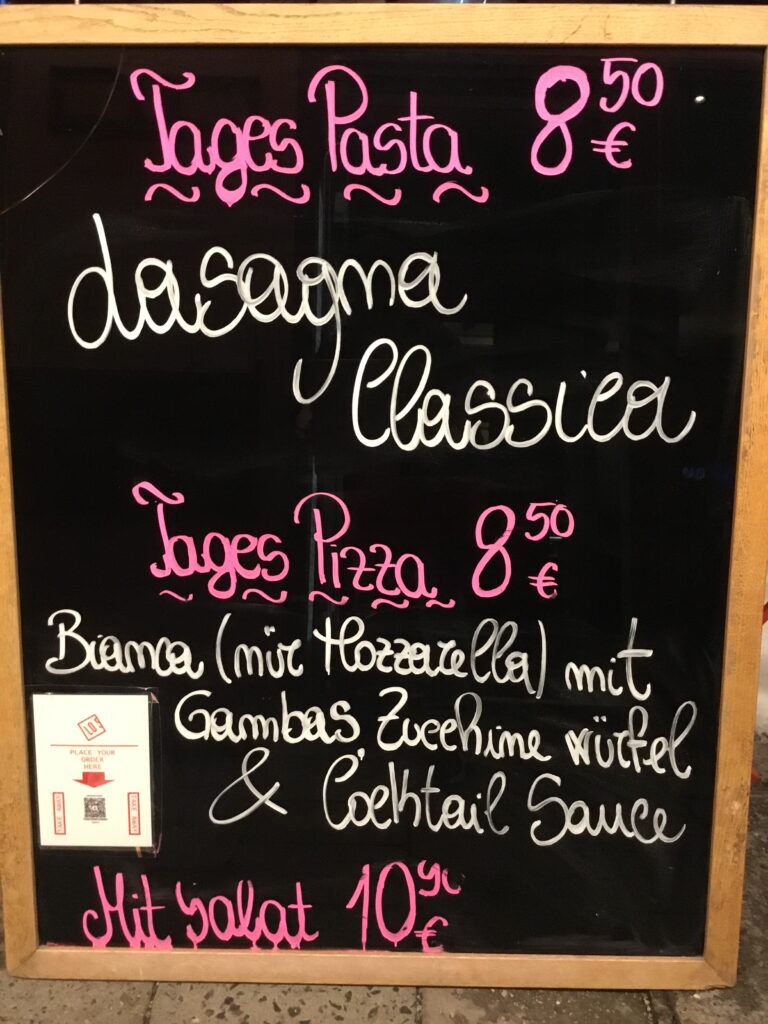 Tages Pasta 8 50 €
Lasagna
Classica
Tages Pizza 8 50 €
Bianca (nür Mozzarella) mit
Gambas Zucchine würfel
& Cocktail Sauce
PLACE YOUR
ORDER
HERE
TAKE AWAY
TAKE AWAY
Mit Salat 10 €